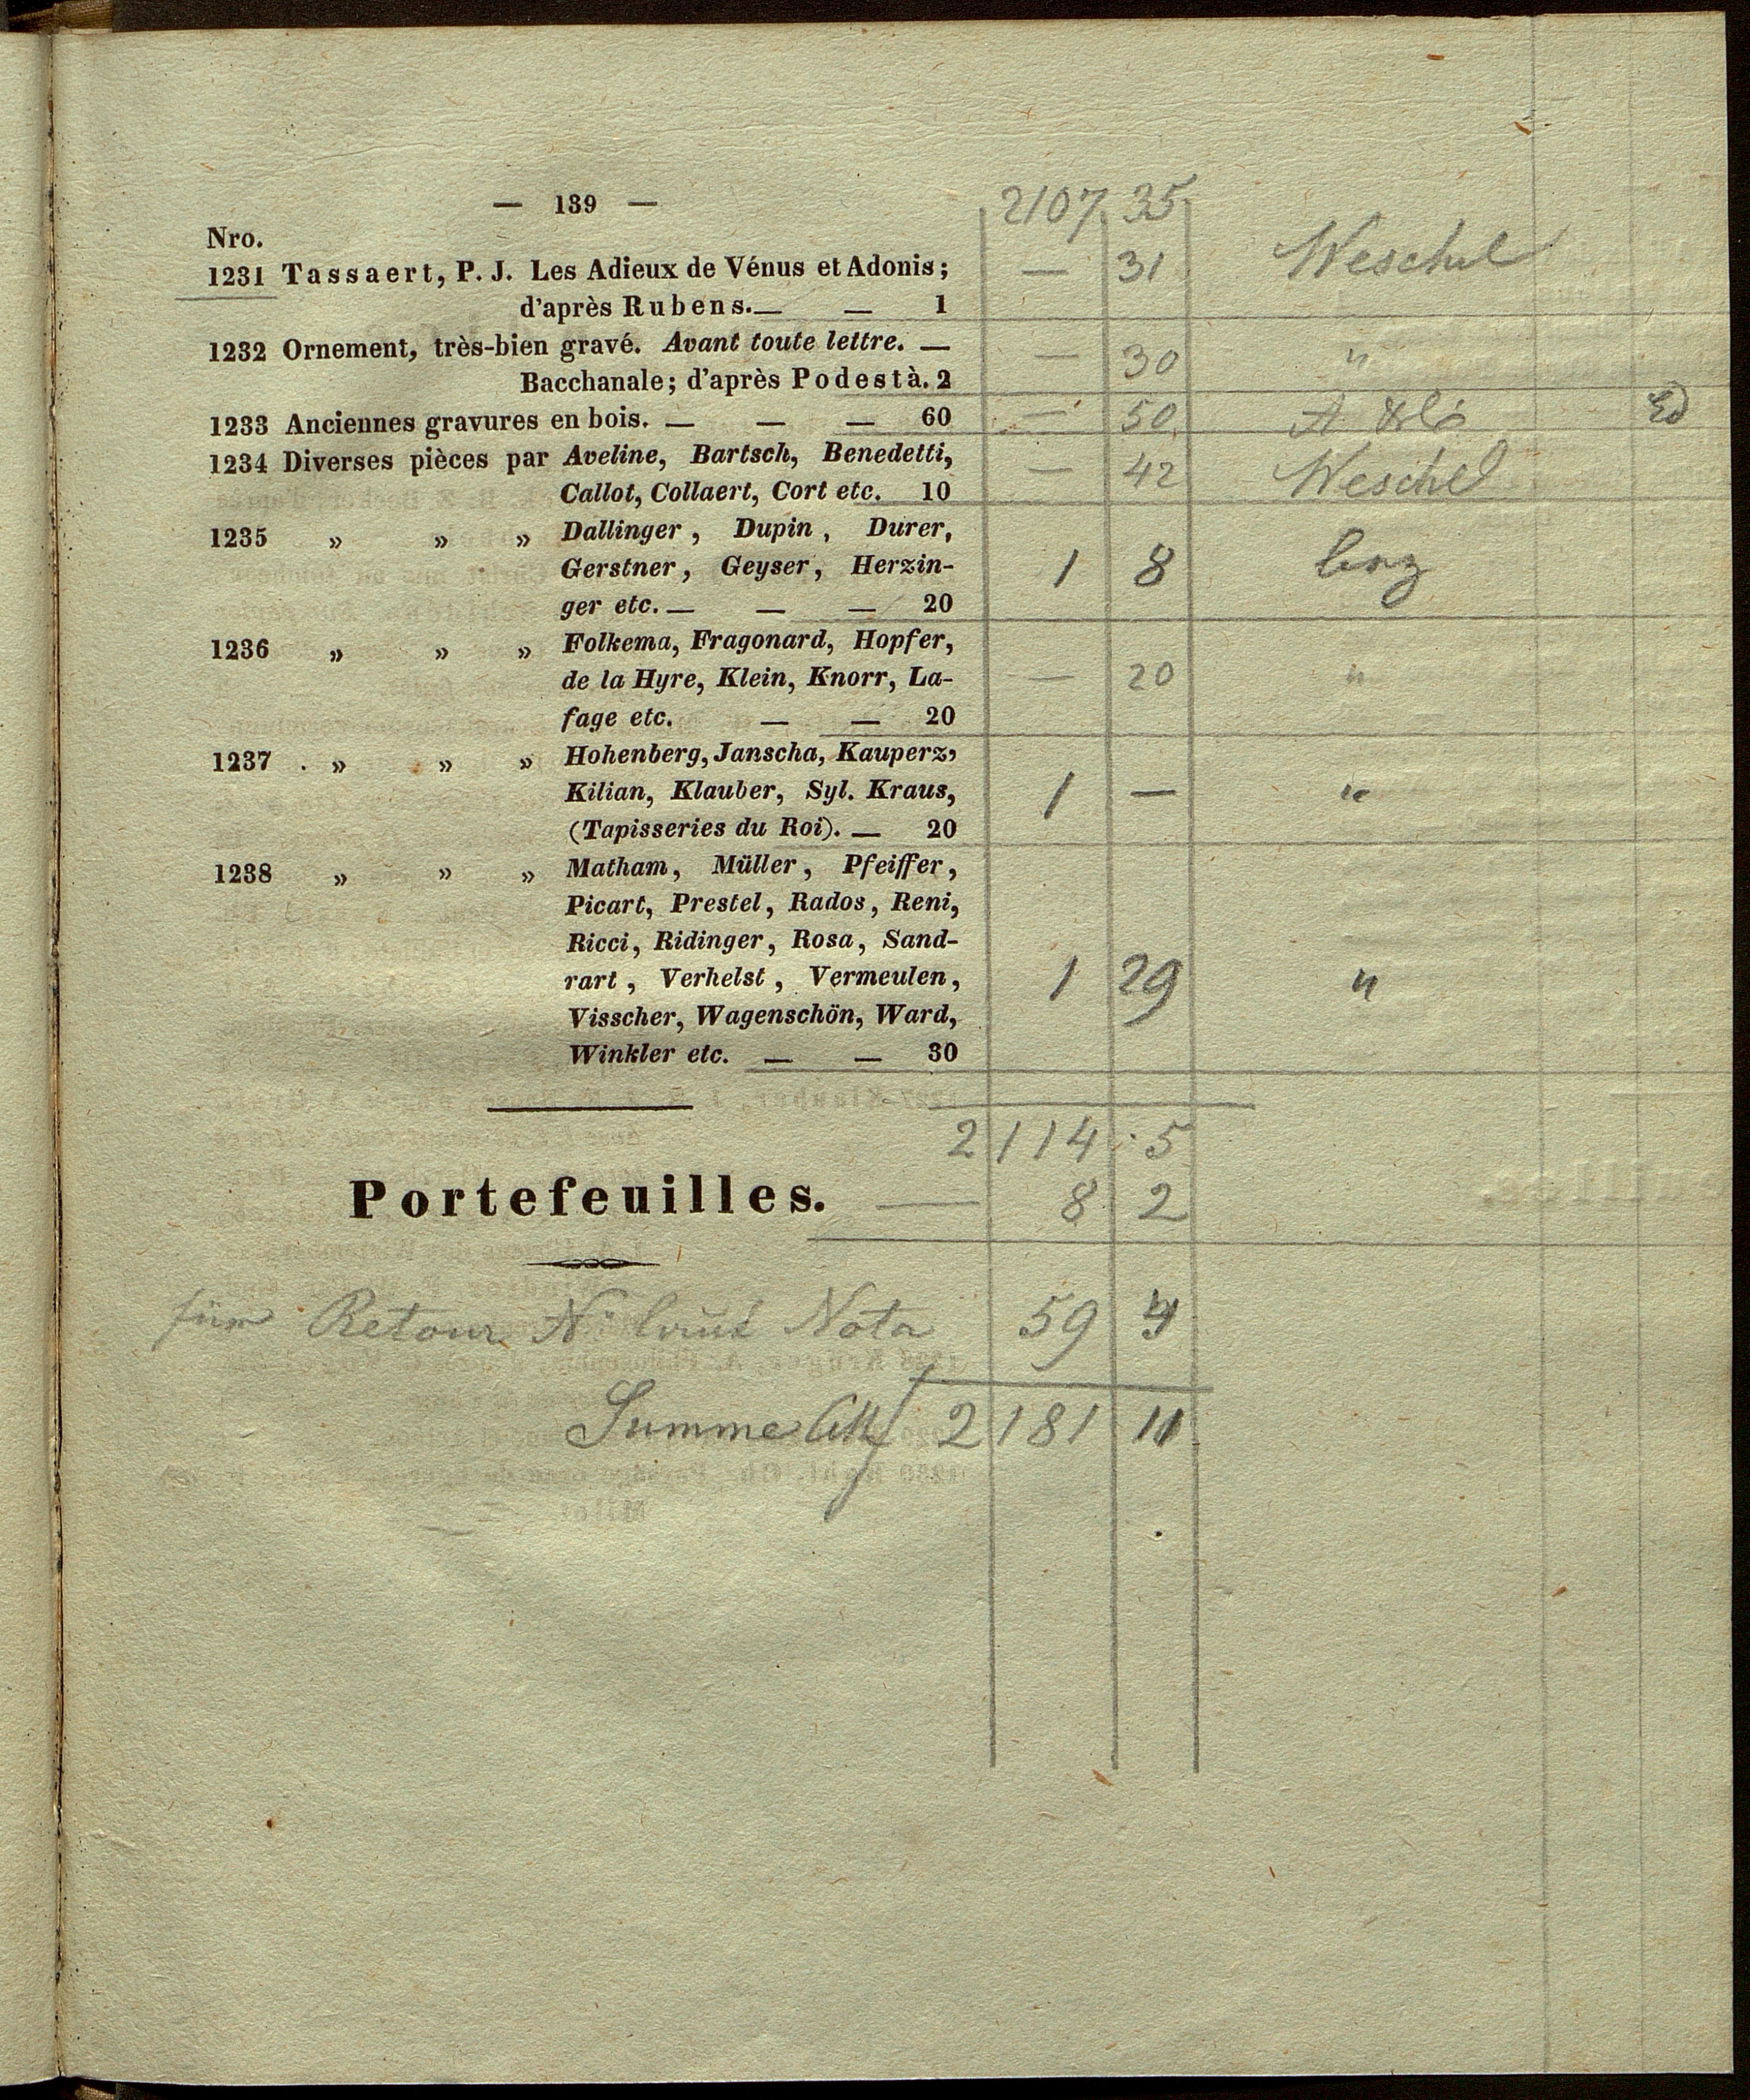 — 139 — 2107 35
Nro.
1231 Tassaert, P. J. Les Adieux de Vénus et Adonis; — 31 Weschel
d'après Rubens. — — 1
1232 Ornement, très-bien gravé. Avant toute lettre. —
Bacchanale; d'après Podestà. 2 — 30 "
1233 Anciennes gravures en bois. — — — 60 — 50
1234 Diverses pièces par Aveline, Bartsch, Benedetti, — 42 Weschel
Callot, Collaert, Cort etc. 10
1235 » » » Dallinger, Dupin, Durer,
Gerstner, Geyser, Herzin- 1 8
ger etc. — — — 20
1236 » » » Folkema, Fragonard, Hopfer,
de la Hyre, Klein, Knorr, La- — 20 "
fage etc. — — 20
1237 » » » Hohenberg, Janscha, Kauperz,
Kilian, Klauber, Syl. Kraus, 1 — "
(Tapisseries du Roi). — 20
1238 » » » Matham, Müller, Pfeiffer,
Picart, Prestel, Rados, Reni,
Ricci, Ridinger, Rosa, Sand-
rart, Verhelst, Vermeulen, 1 29 "
Visscher, Wagenschön, Ward,
Winkler etc. — — 30
2114 5
Portefeuilles. — 8 2
für Retour No laut Nota 59 4
Summe 2181 11